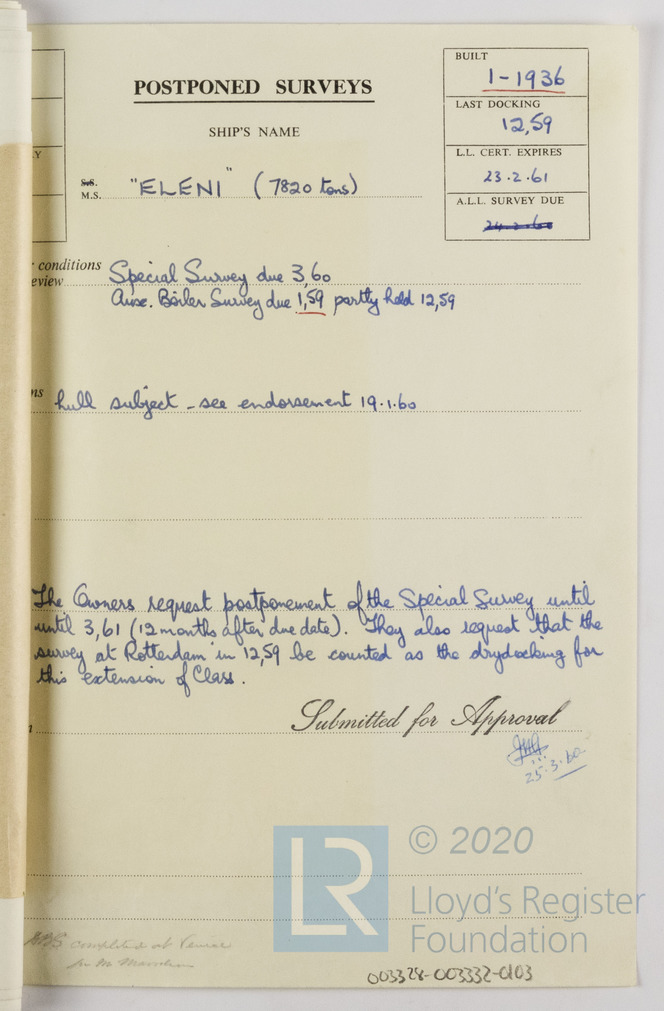 POSTPONED SURVEYS
SHIP'S NAME
S.S.
M.S. "ELENI" (7820 tons)
BUILT
1-1936
LAST DOCKING
12,59
L.L. CERT. EXPIRES
23.2.61
A.L.L. SURVEY DUE
24.2.60
Y
conditions
eview
Special Survey due 3,60
Aux. Boiler Survey due 1,59 partly held 12,59
ns
hull subject - see endorsement 19.1.60
The Owners request postponement of the Special Survey until
until 3,61 (12 months after due date). They also request that the
survey at Rotterdam in 12,59 be counted as the drydocking for
this extension of Class.
Submitted for Approval
25.3.60
LR
© 2020
Lloyd's Register
Foundation
completed at Venice
003328-003332-0103